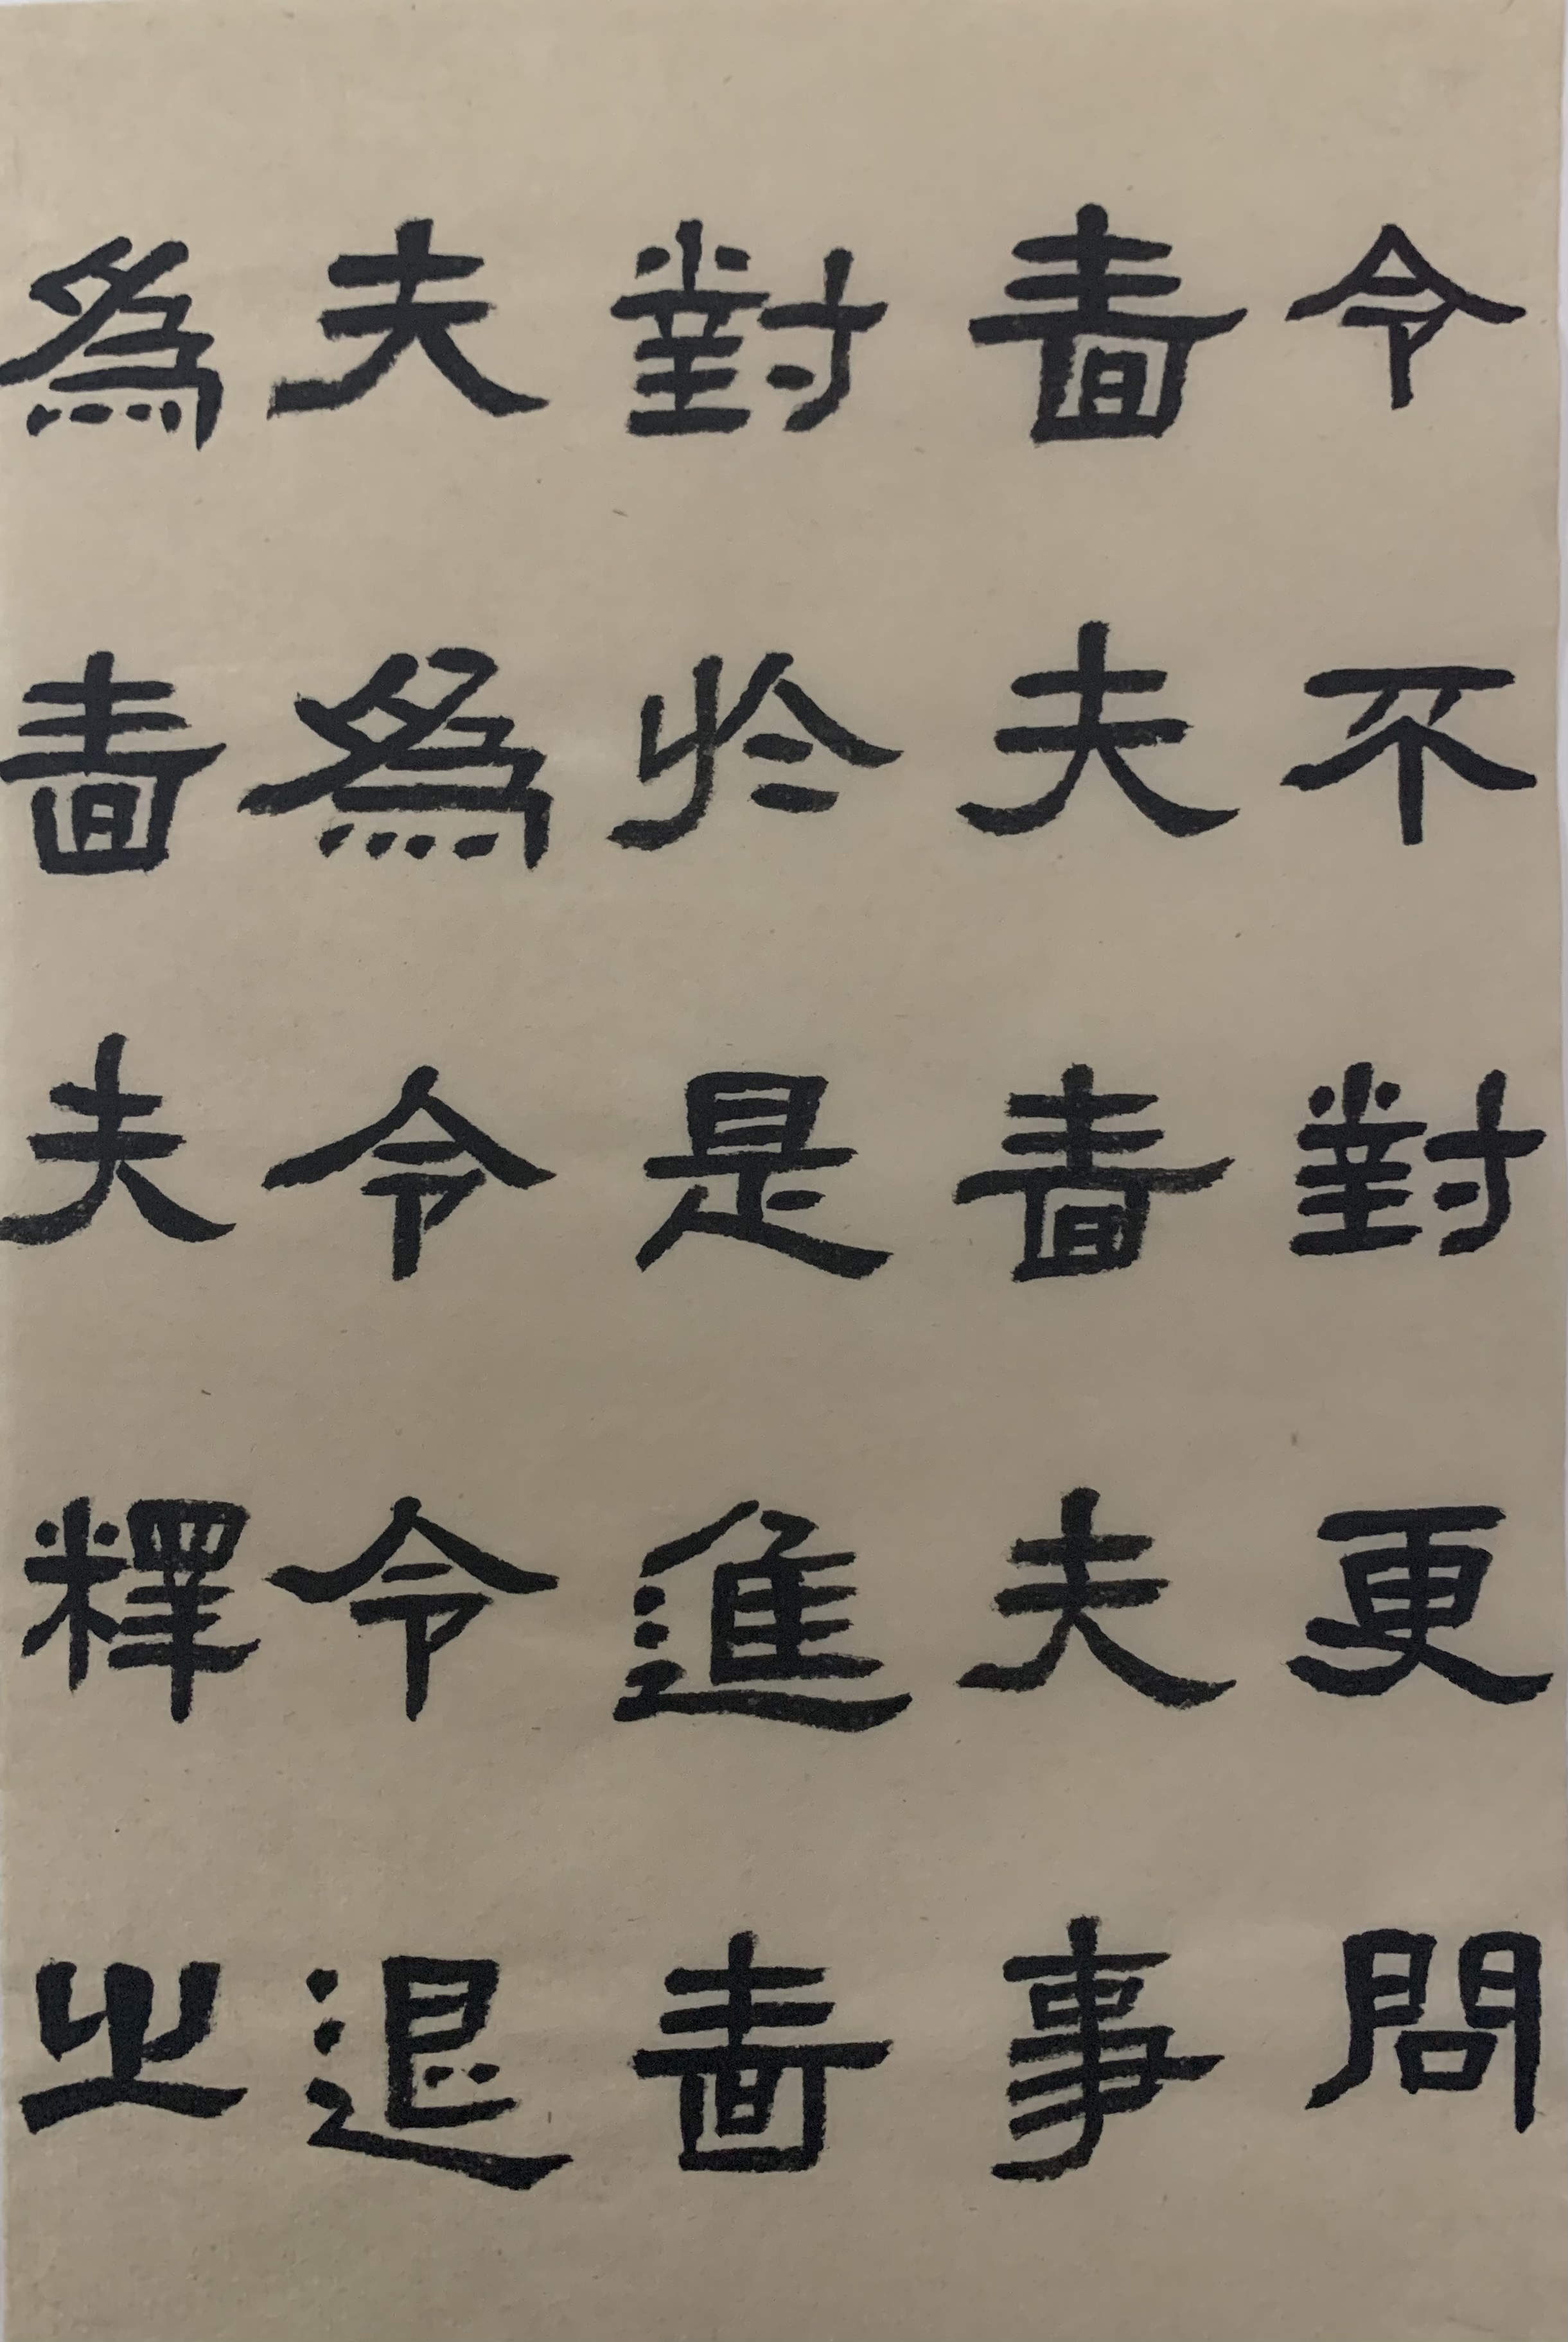 令不對更問
嗇夫嗇夫事
對於是進嗇
夫為令令退
為嗇夫釋之